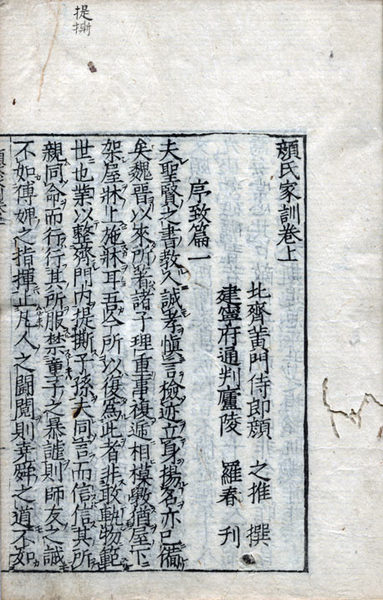 提撕
顏氏家訓卷上
北齊黃門侍郎顏之推撰
建寧府通判廬陵羅春刊
序致篇一
夫聖賢之書教人誠孝慎言檢迹立身揚名亦已備
矣魏晉以來所著諸子理重事複遞相模斆猶屋下
架屋牀上施牀耳吾今所以復爲此者非敢軌物範
世也業以整齊門內提撕子孫夫同言而信信其所
親同命而行行其所服禁童子之暴謔則師友之誡
不如傅婢之指揮止凡人之鬪鬩則堯舜之道不如